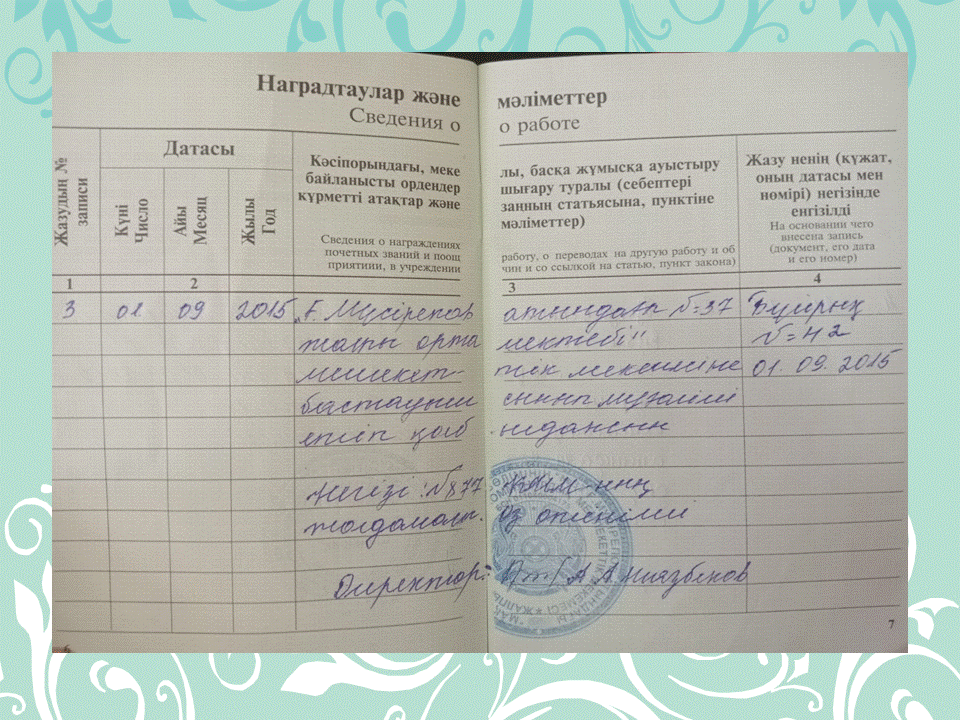 Наградтаулар және мәліметтер
Сведения о о работе
Жазудың №
записи
Датасы
Күні
Число
Айы
Месяц
Жылы
Год
Кәсіпорындағы, меке
байланысты ордендер
құрметті атақтар және
Сведения о награждениях
почетных званий и поощ
приятиии, в учреждении
лы, басқа жұмысқа ауыстыру
шығару туралы (себептері
заңның статьясына, пунктіне
мәліметтер)
работу, о переводах на другую работу и об
чии и со ссылкой на статью, пункт закона)
Жазу ненің (құжат,
оның датасы мен
нөмірі) негізінде
енгізілді
На основании чего
внесена запись
(документ, его дата
и его номер)
1 2 3 4
3 01 09 2015 „Ғ. Мүсірепов атындағы №37 Бұйрық
жалпы орта мектебі" №42
мемлекет- тік мекемесіне 01. 09. 2015
бастауыш сынып мұғалімі
етіп қаб ылдансын
Негізі: №877
жолдамасы. өз өтініші
Директор: А.А. Ниязбеков
6
7